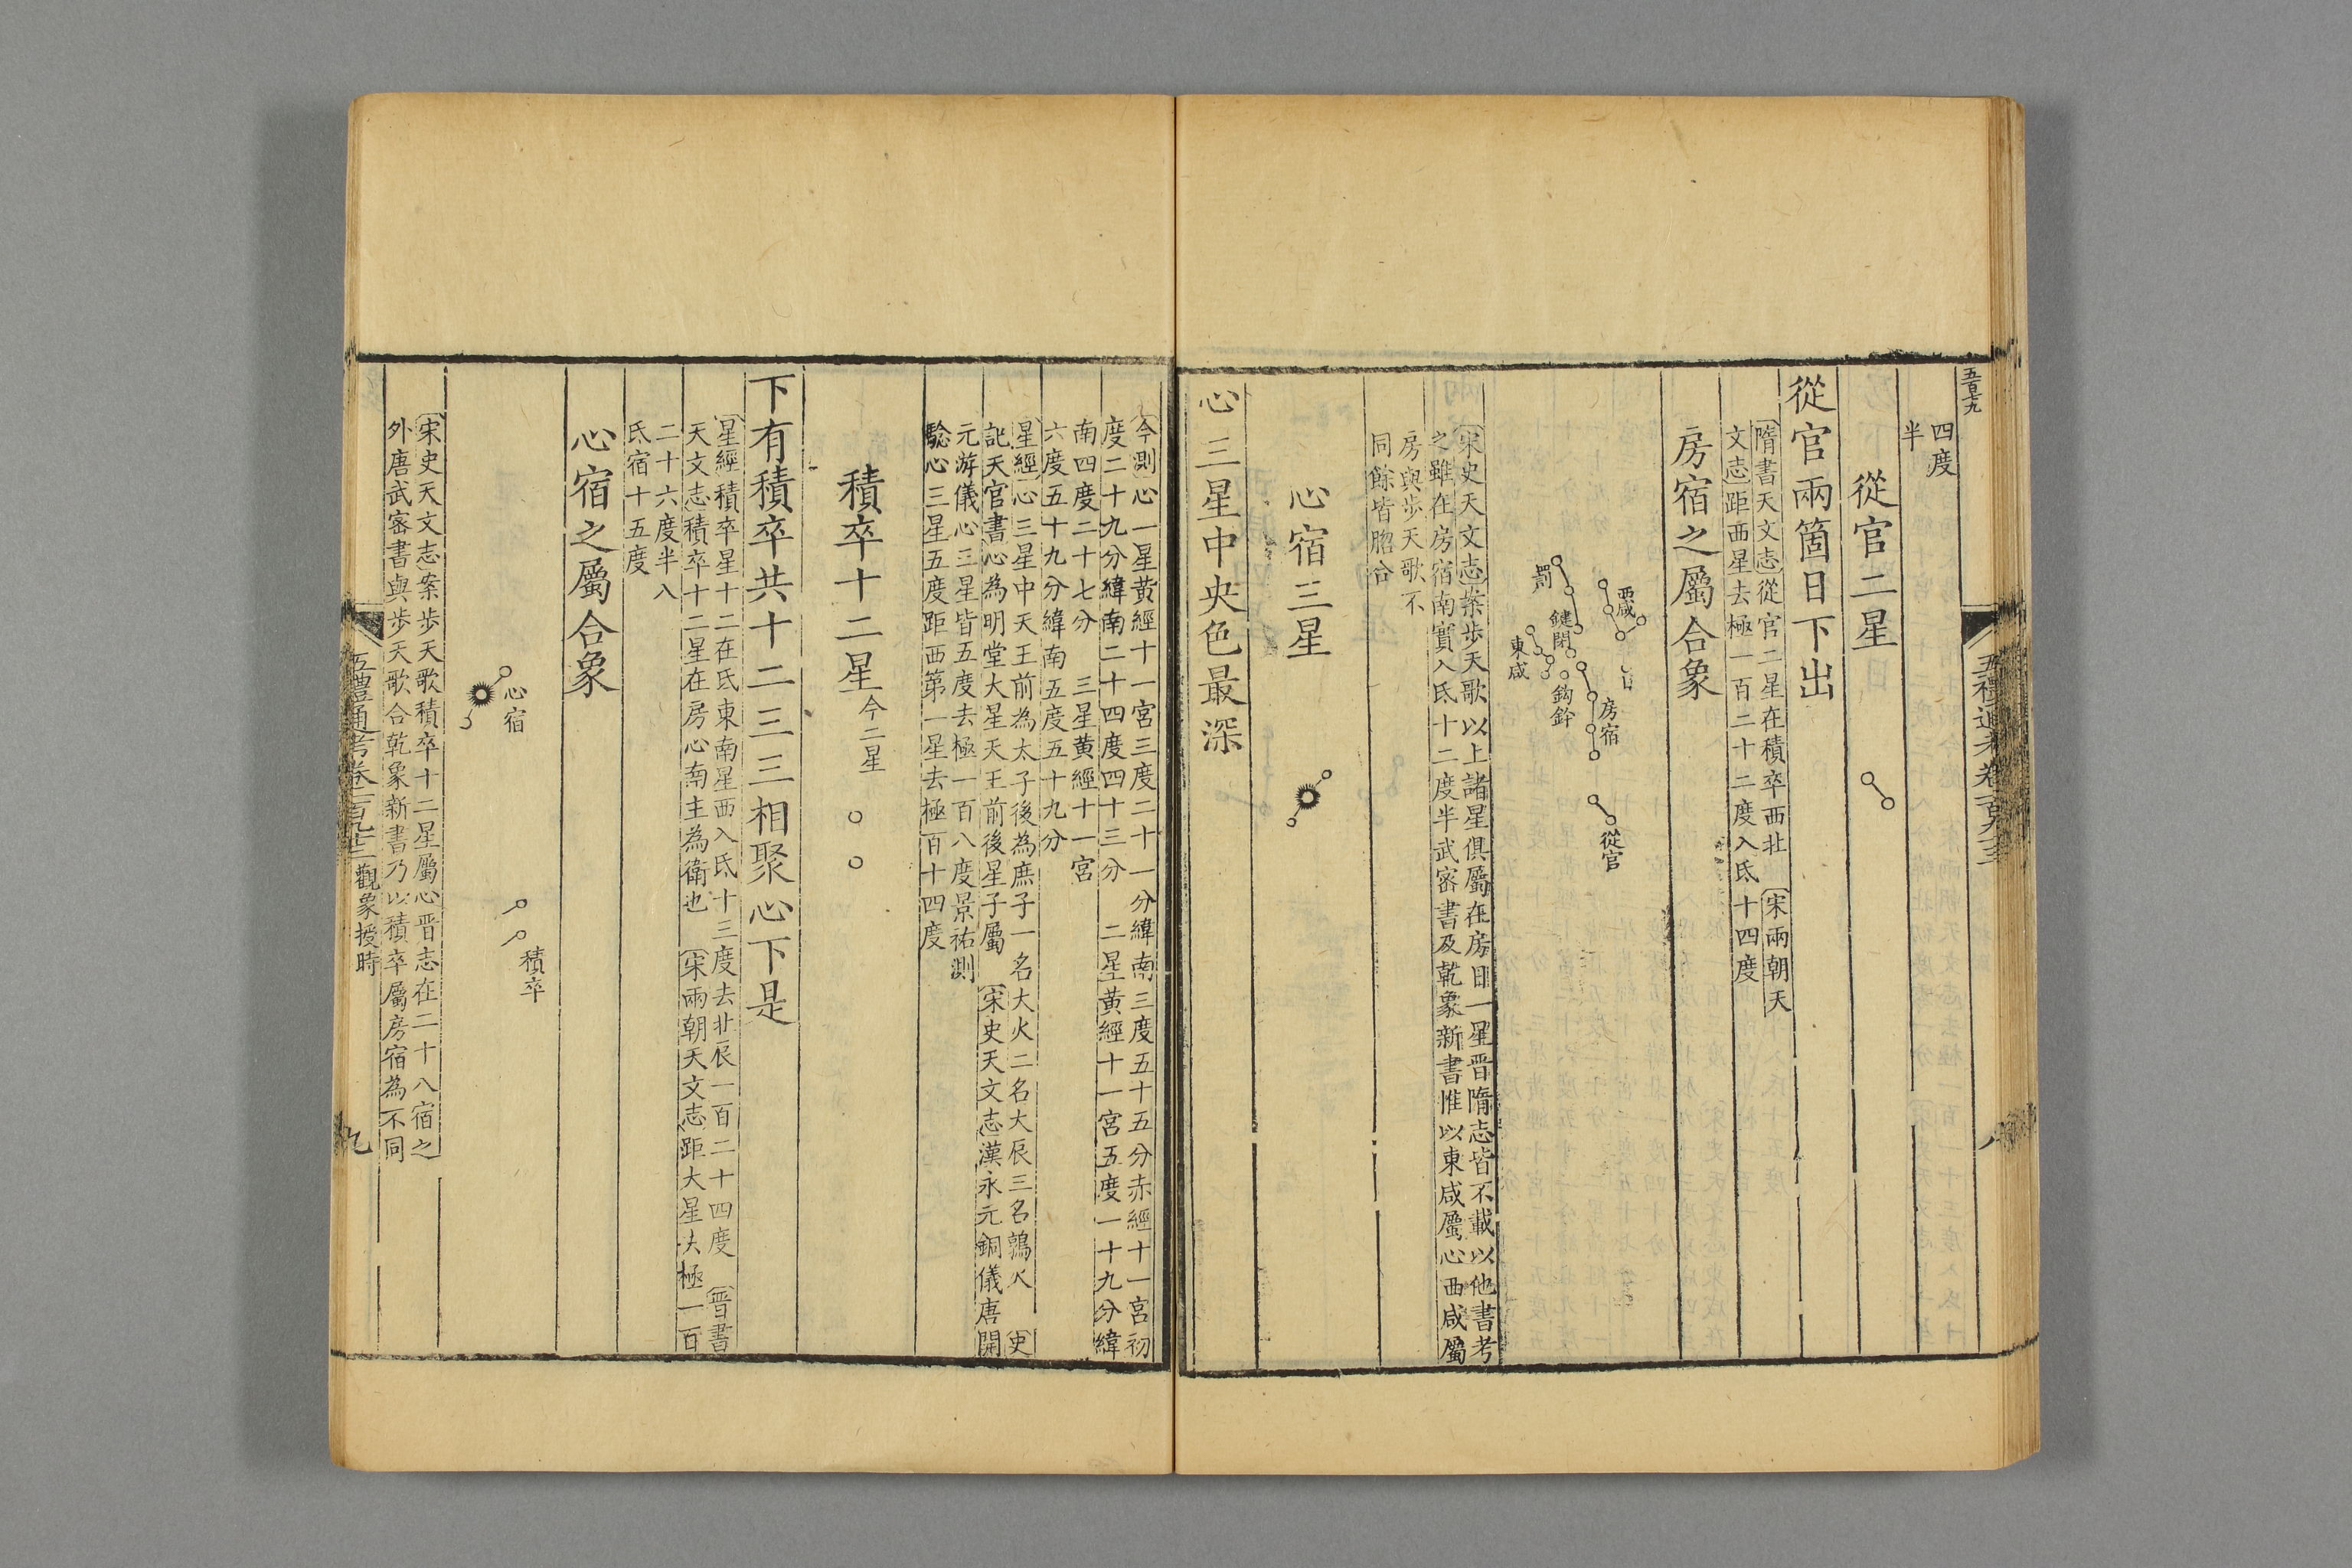 五百七九
四度
半
從官二星
從官兩箇日下出
隋書天文志從官二星在積卒西北 宋兩朝天
文志距西星去極一百二十二度入氐十四度
房宿之屬合象
西咸
日
房宿
從官
罰
鍵閉
鉤鈐
東咸
宋史天文志案步天歌以上諸星俱屬在房日一星晋隋志皆不載以他書考
之雖在房宿南實入氐十二度半武宻書及乾象新書惟以東咸屬心西咸屬
房與步天歌不
同餘皆脗合
心宿三星
心三星中央色最深
五禮通考卷一百八十三
八
今測心一星黄經十一宫三度二十一分緯南三度五十五分赤經十一宫初
度二十九分緯南二十四度四十三分 二星黄經十一宫五度一十九分緯
南四度二十七分 三星黄經十一宫
六度五十九分緯南五度五十九分
星經心三星中天王前為太子後為庶子一名大火二名大辰三名鶉火 史
記天官書心為明堂大星天王前後星子屬 宋史天文志漢永元銅儀唐開
元游儀心三星皆五度去極一百八度景祐測
驗心三星五度距西第一星去極百十四度
積卒十二星今二星
下有積卒共十二三三相聚心下是
星經積卒星十二在氐東南星西入氐十三度去北辰一百二十四度 晉書
天文志積卒十二星在房心南主為衛也 宋兩朝天文志距大星去極一百
二十六度半八
氐宿十五度
心宿之屬合象
心宿
積卒
宋史天文志案步天歌積卒十二星屬心晋志在二十八宿之
外唐武宻書與步天歌合乾象新書乃以積卒屬房宿為不同
五禮通考卷一百八十三 觀象授時
九